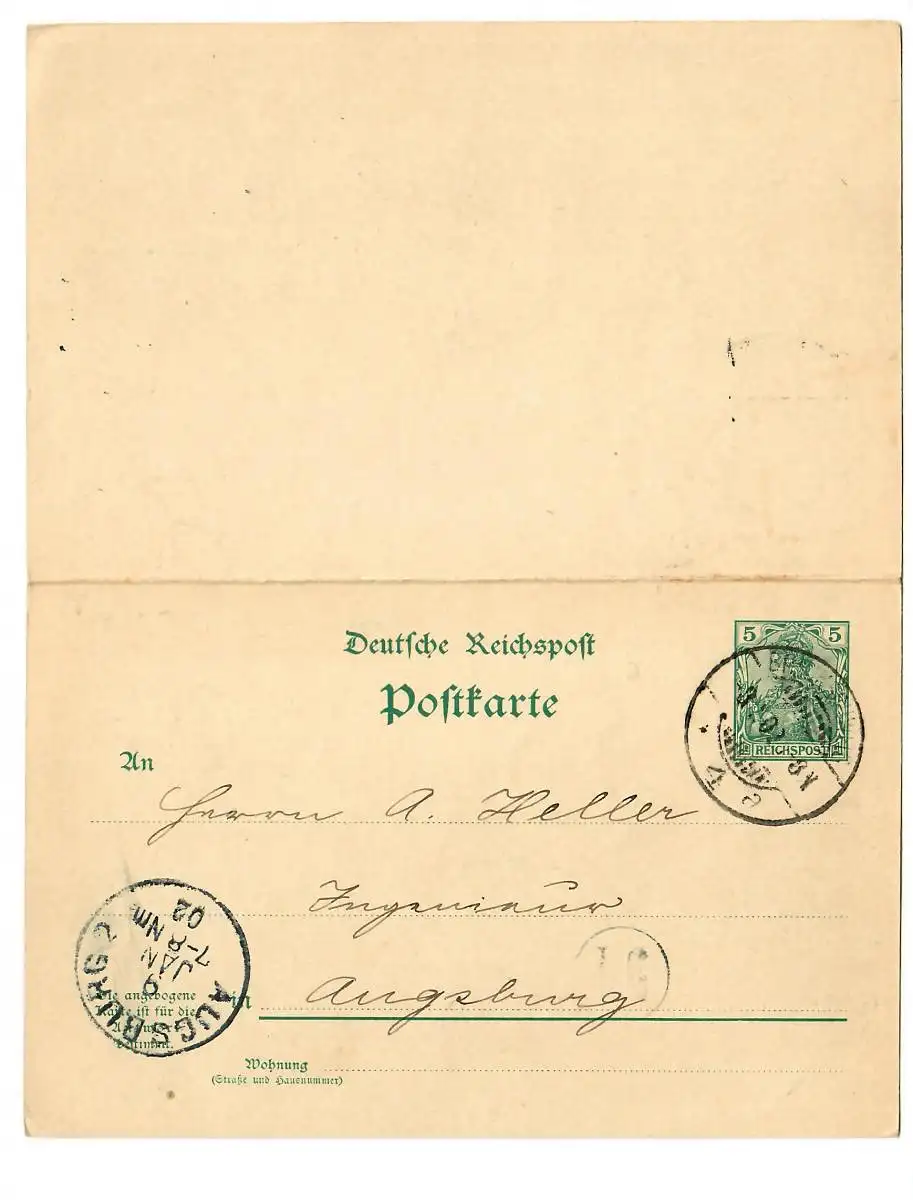 Deutsche Reichspost
Postkarte
5 5
REICHSPOST
An
Herrn A. Heller
Ingenieur
in Augsburg
AUGSBURG 2
9
JAN
7-8 Nm
02
Die angebogene
Karte ist für die
Antwort
bestimmt.
Wohnung
(Straße und Hausnummer)